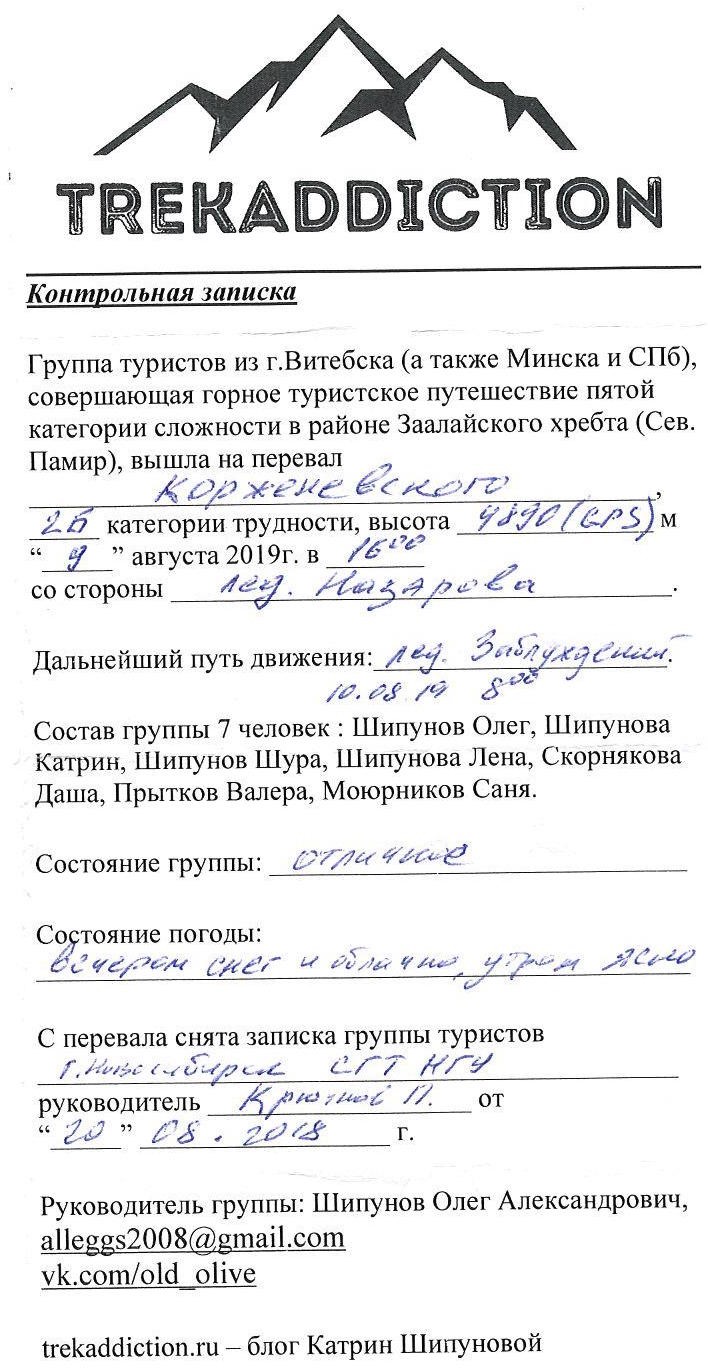 TREKADDICTION
Контрольная записка
Группа туристов из г.Витебска (а также Минска и СПб),
совершающая горное туристское путешествие пятой
категории сложности в районе Заалайского хребта (Сев.
Памир), вышла на перевал
Корженевского,
2Б категории трудности, высота 4890 (GPS) м
“ 9 ” августа 2019г. в 16⁰⁰
со стороны лед. Назарова.
Дальнейший путь движения: лед. Заблуждений.
10.08.19 8⁰⁰
Состав группы 7 человек : Шипунов Олег, Шипунова
Катрин, Шипунов Шура, Шипунова Лена, Скорнякова
Даша, Прытков Валера, Моюрников Саня.
Состояние группы: отличное
Состояние погоды:
вечером снег и облачно, утром ясно
С перевала снята записка группы туристов
г. Новосибирск СГТ НГУ
руководитель П. от
“ 20 ” 08. 2018 г.
Руководитель группы: Шипунов Олег Александрович,
alleggs2008@gmail.com
vk.com/old_olive
trekaddiction.ru – блог Катрин Шипуновой